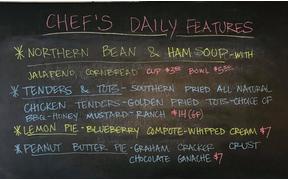 CHEF'S DAILY FEATURES
* NORTHERN BEAN & HAM SOUP - WITH
JALAPENO CORNBREAD CUP $3.95 BOWL $5.95
* TENDERS & TOTS - SOUTHERN FRIED ALL NATURAL
CHICKEN TENDERS - GOLDEN FRIED TOTS - CHOICE OF
BBQ - HONEY MUSTARD - RANCH $14 (GF)
* LEMON PIE - BLUEBERRY COMPOTE - WHIPPED CREAM $7
* PEANUT BUTTER PIE - GRAHAM CRACKER CRUST
CHOCOLATE GANACHE $7